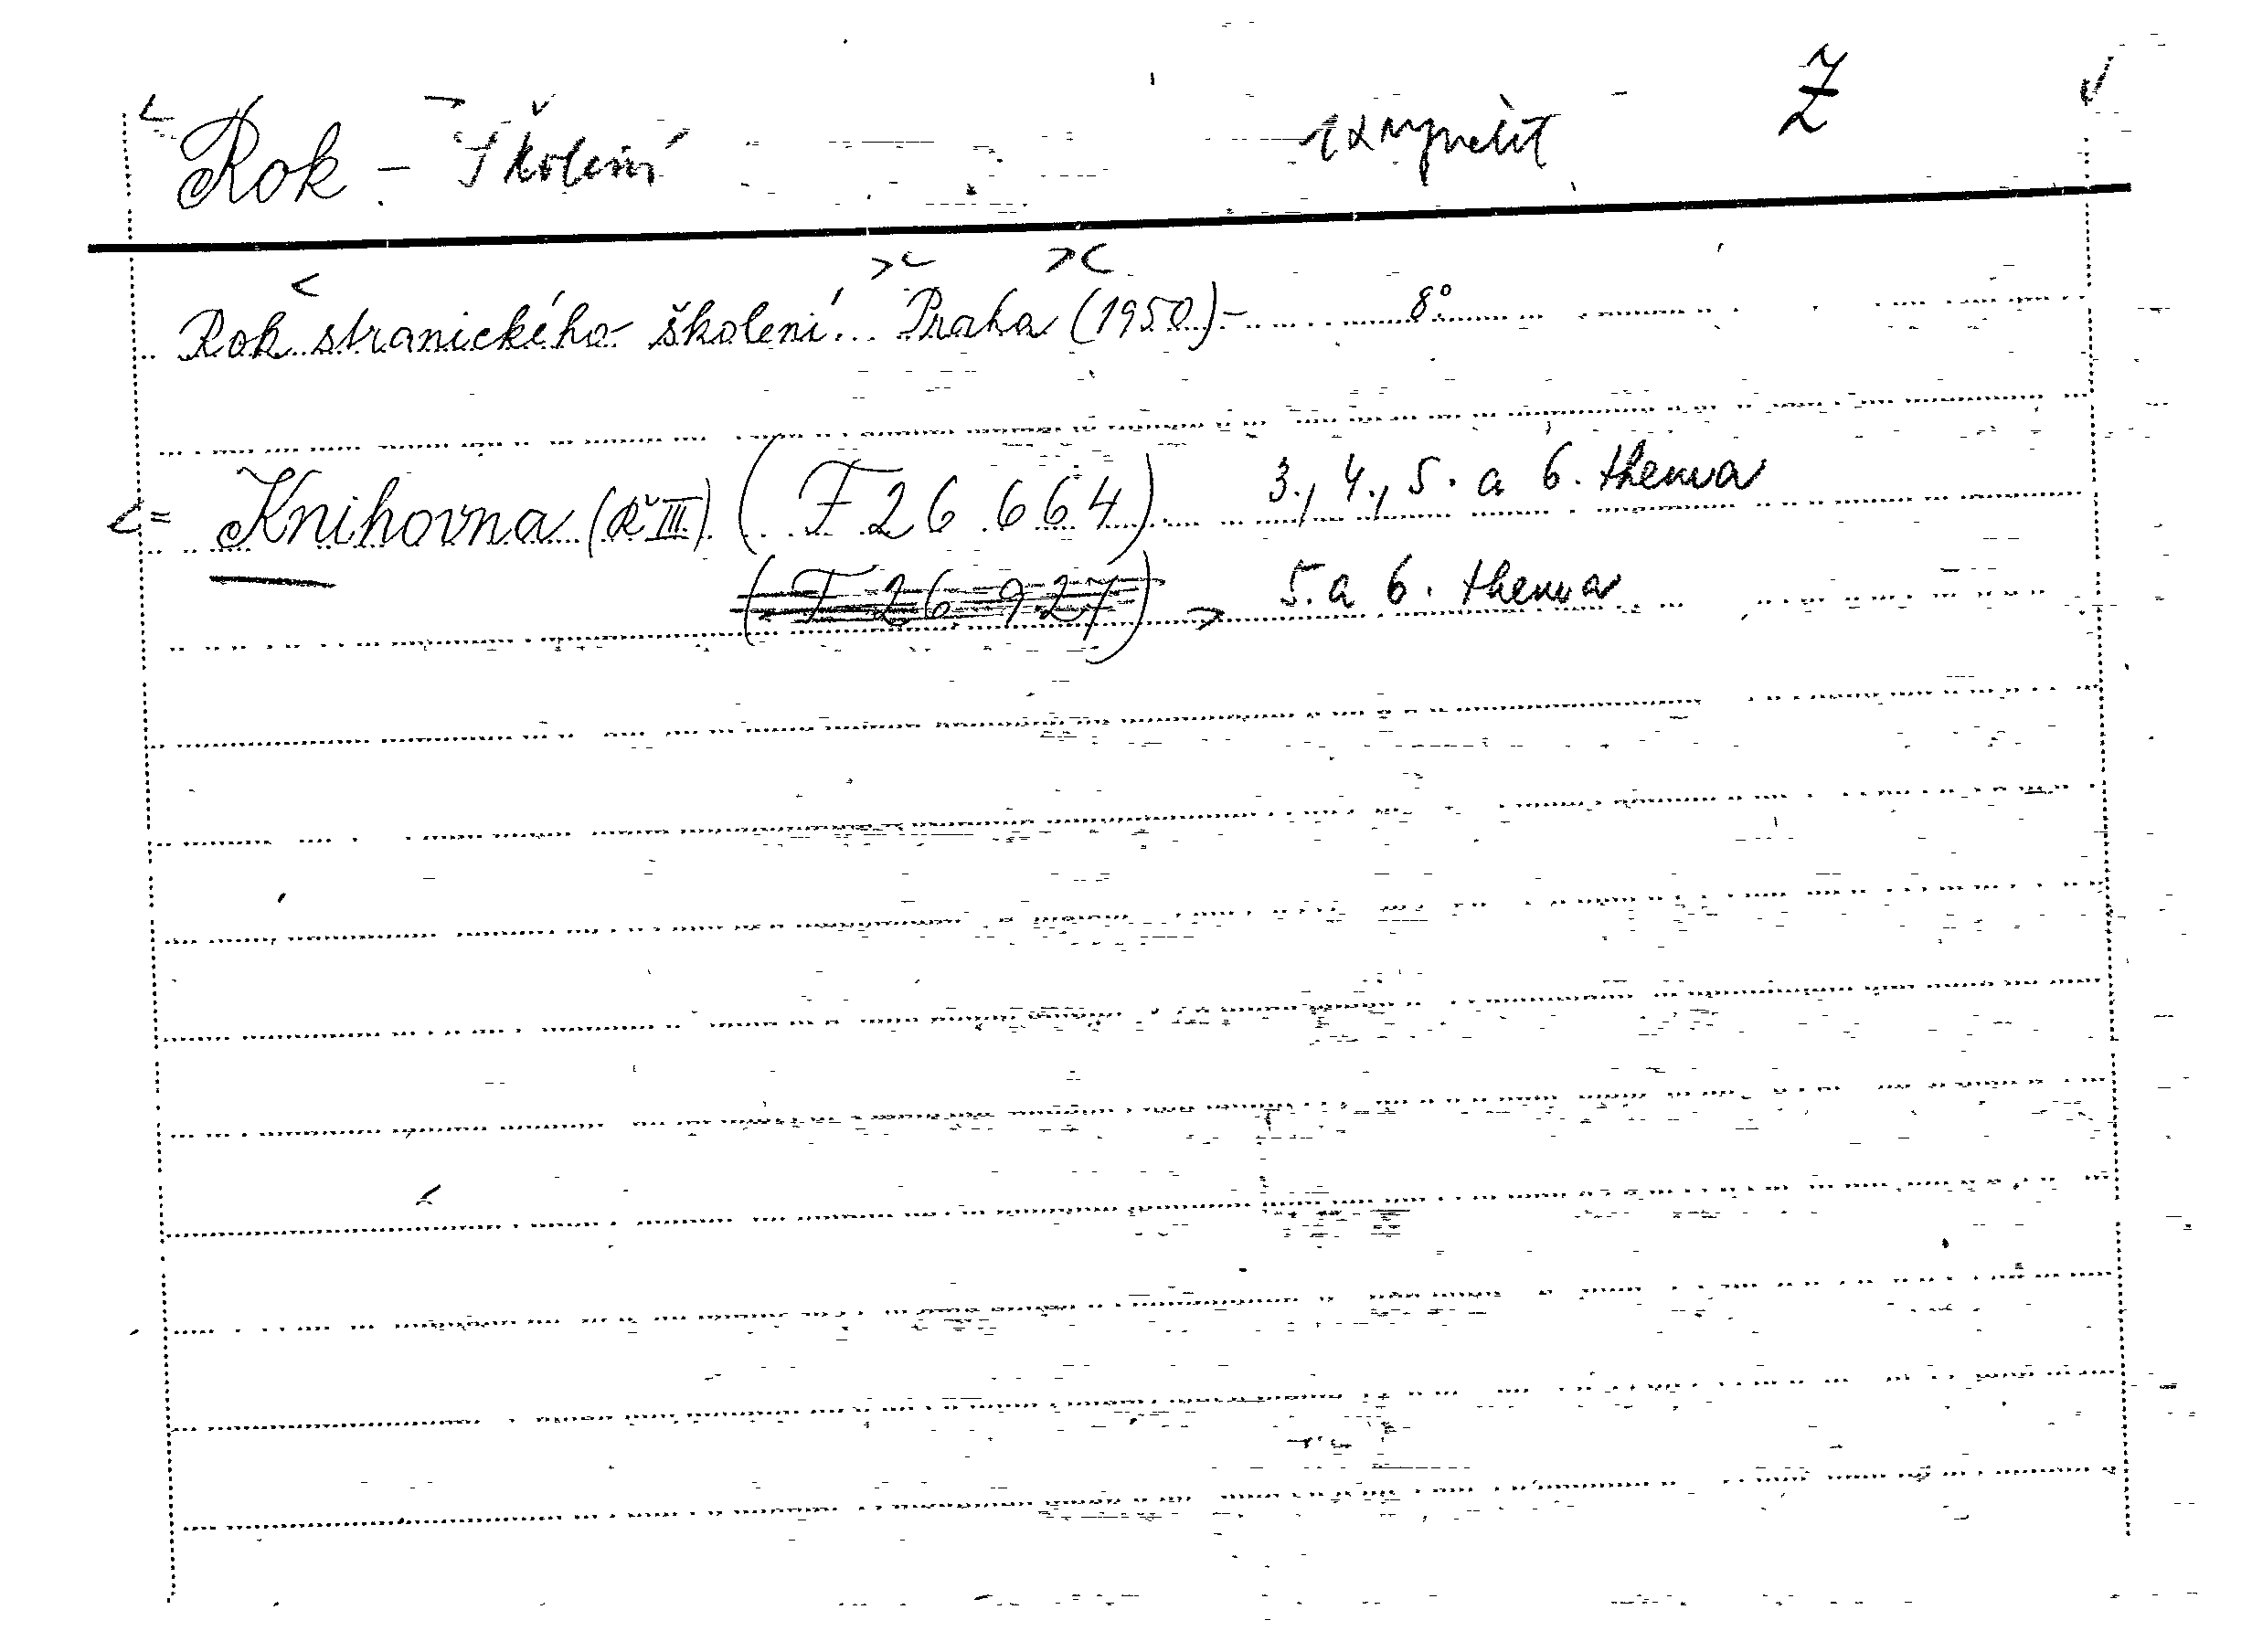 Rok - Školení Z
Rok stranického školení. Praha (1950)- 8°
= Knihovna (Ř III) (F 26.664) 3., 4., 5. a 6. thema
(F 26 927) 5. a 6. thema